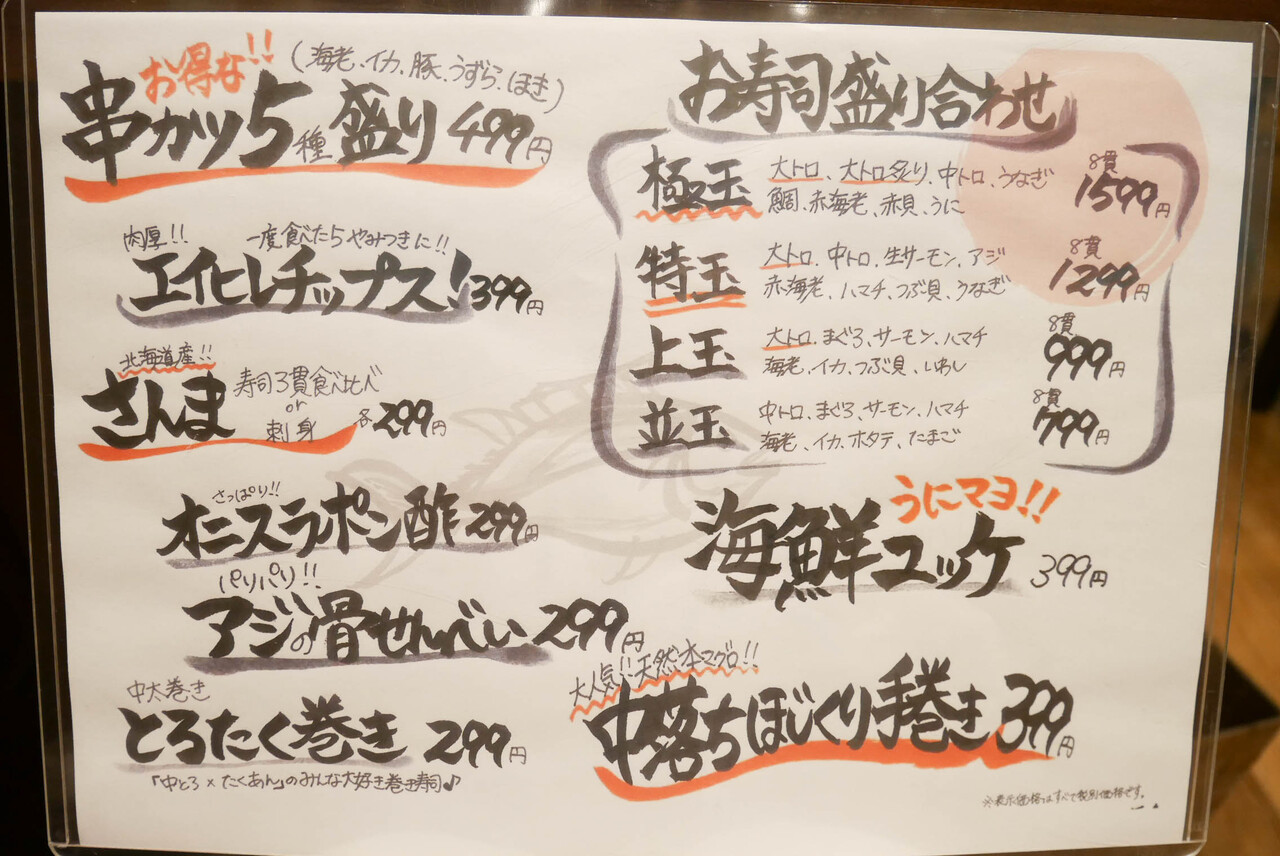 お得な!!
(海老、イカ、豚、うずら、ほき)
串カツ5種盛り 499円
肉厚!! 一度食べたらやみつきに!!
エイヒレチップス! 399円
北海道産!!
さんま 寿司3貫食べ比べ or 刺身 各299円
さっぱり!!
オニスラポン酢 299円
パリパリ!!
アジの骨せんべい 299円
中太巻き
とろたく巻き 299円
「中とろ×たくあん」のみんな大好き巻き寿司♪
お寿司盛り合わせ
極玉 大トロ、大トロ炙り、中トロ、うなぎ
鯛、赤海老、赤貝、うに
8貫 1599円
特玉 大トロ、中トロ、生サーモン、アジ
赤海老、ハマチ、つぶ貝、うなぎ
8貫 1299円
上玉 大トロ、まぐろ、サーモン、ハマチ
海老、イカ、つぶ貝、いわし
8貫 999円
並玉 中トロ、まぐろ、サーモン、ハマチ
海老、イカ、ホタテ、たまご
8貫 799円
うにマヨ!!
海鮮ユッケ 399円
大人気!!天然本マグロ!!
中落ちほじくり手巻き 399円
※表示価格はすべて税別価格です。